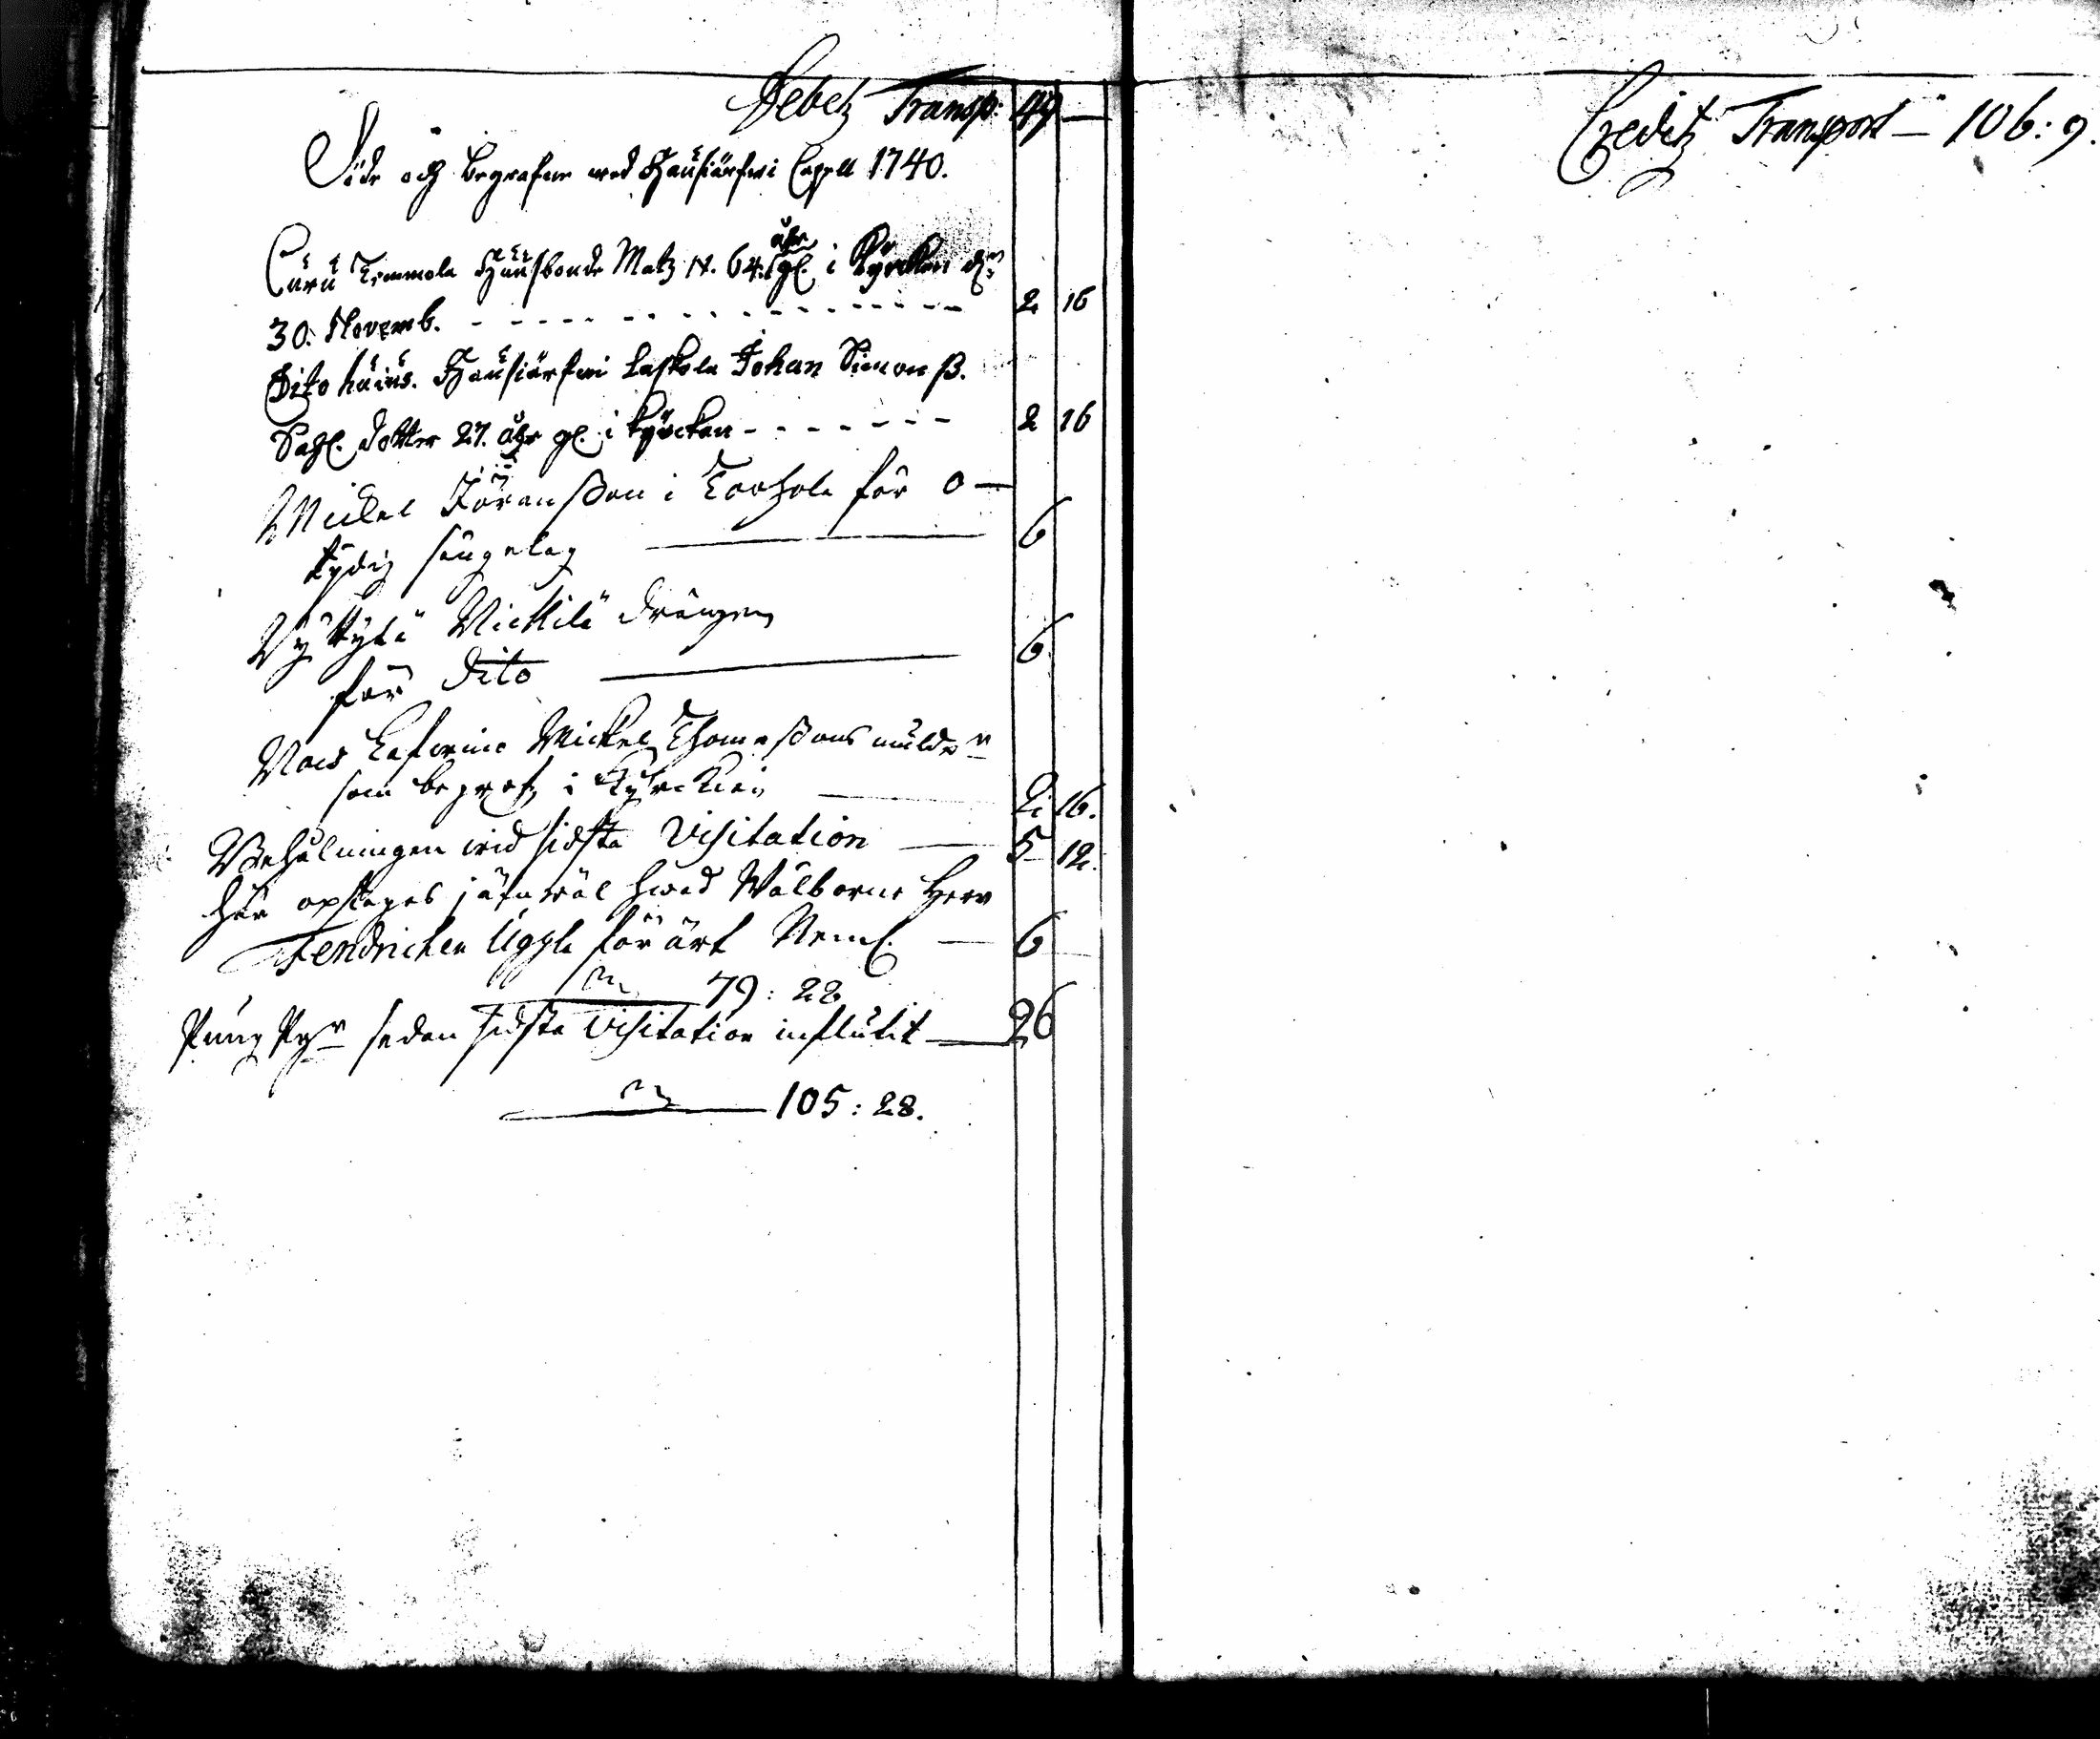 Debetz Transp: 49 —
Döde och begrafne wed Hausiärfwi Capell 1740.
Curu Tommola Huusbonde Matz N. 64. åhr gl. i Kyrckan dn
30. Novemb. - - - - - - - - 2 16
Dito huius. Hausiärfwi Laskola Johan Simonß.
Sahl. dotter 27. åhr gl. i kyrckan - - - - - - - 2 16
Mickel Jöranßon i Torhola för o—
tydig sängelag — 6
Mickilä drängen
för dito — 6
Mickel Thomaßons
som begrofz i Kyrckian — 2: 16.
Behålningen wid sidsta Visitation — 5 12.
här optages jämwäl hwad Wälborne Herr
Fendricken Uggla förärt Neml. — 6
Sm 79: 28
Pung Pgr sedan sidsta Visitation influtit — 26
Sm — 105: 28.
Creditz Transport — 106: 9.